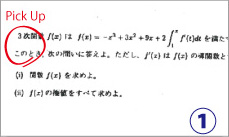 Pick Up
3次関数 f(x) は f(x) = -x³+3x²+9x+2∫₁ˣ f'(t)dt を満た
このとき、次の問いに答えよ。ただし、f'(x) は f(x) の導関数と
(i) 関数 f(x) を求めよ。
(ii) f(x) の極値をすべて求めよ。
1